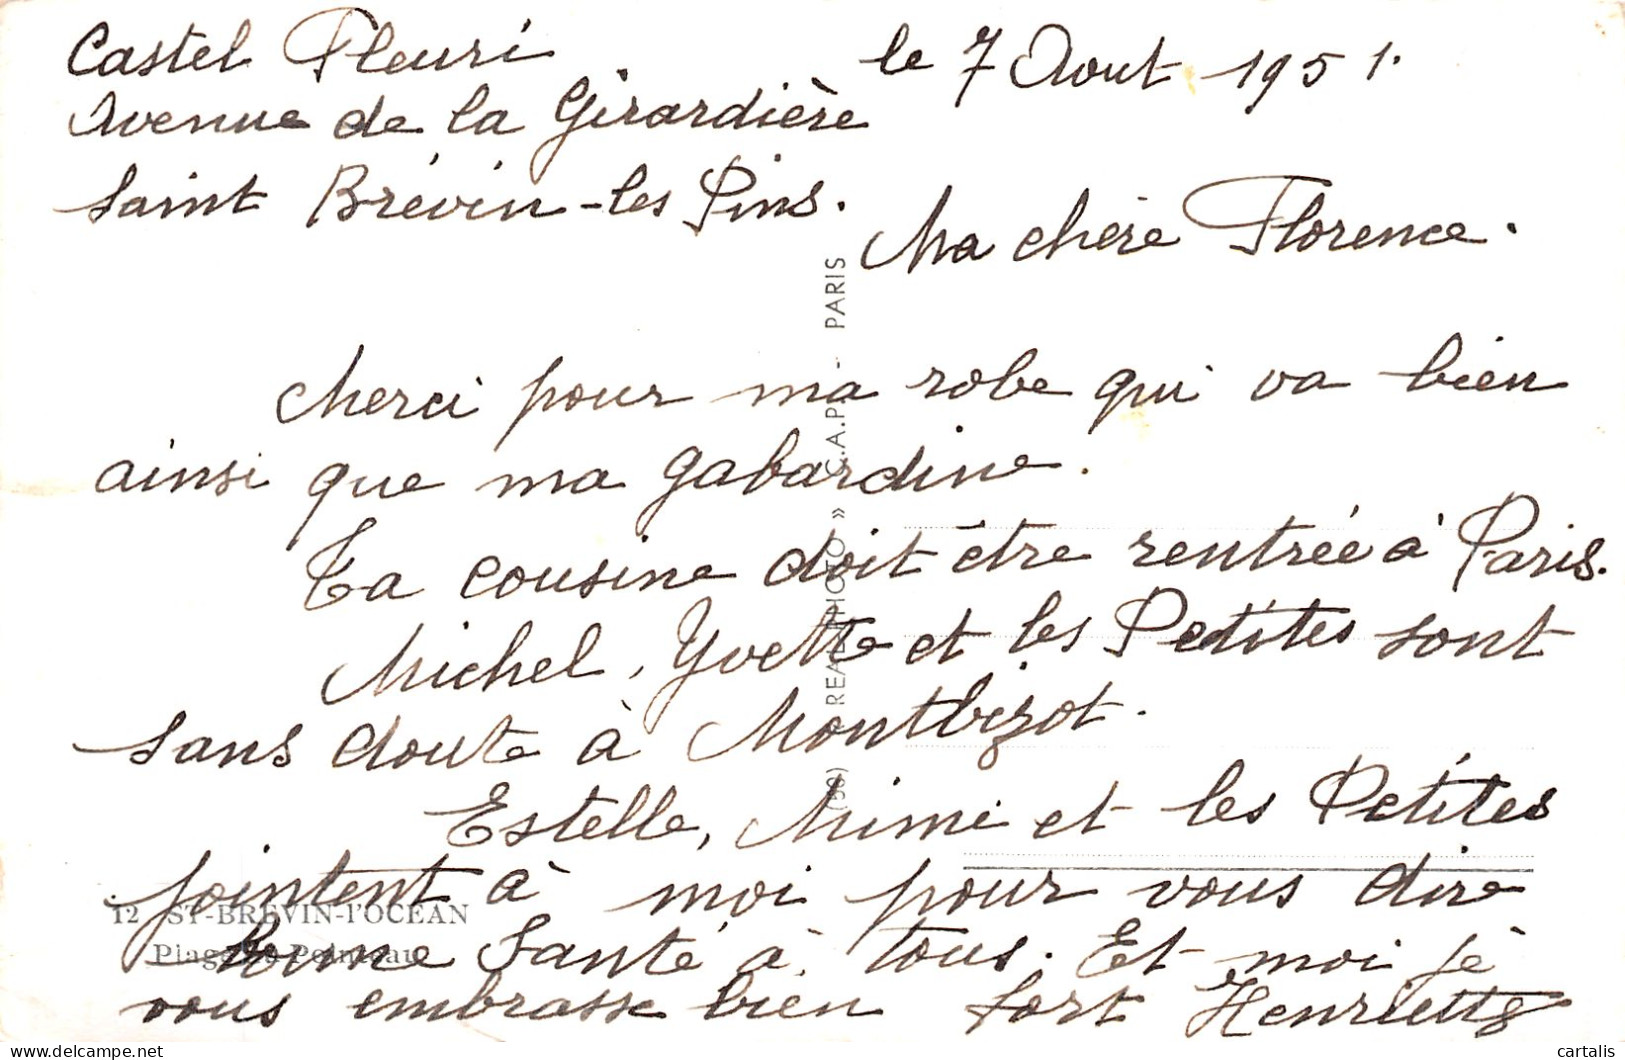 Castel Fleuri
Avenue de la Girardière
Saint Brévin-les Pins.
le 7 Aout 1951.
Ma chère Florence.
Merci pour ma robe qui va bien
ainsi que ma gabardine.
Ta cousine doit être rentrée à Paris.
Michel, Yvette et les Petites sont
sans doute à Montbizot.
Estelle, Mimi et les Petites
joignent à moi pour vous dire
Bonne Santé à tous. Et moi je
vous embrasse bien fort Henriette
12 ST-BREVIN-l'OCEAN
Plage du Pointeau
"REAL-PHOTO" C.A.P. - PARIS
cartalis
www.delcampe.net